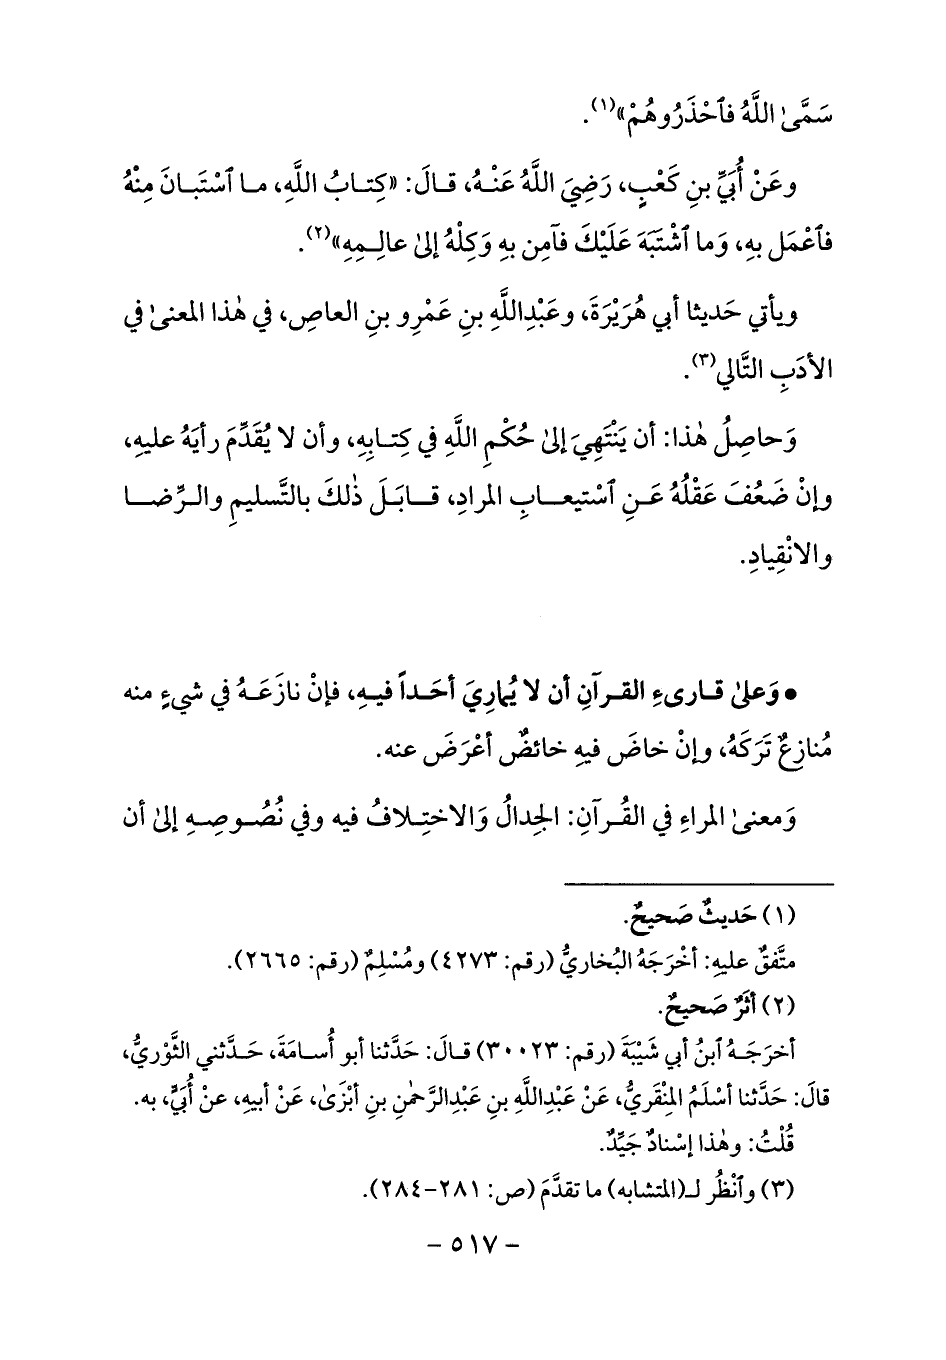 سَمَّىٰ اللَّهُ فَٱحْذَرُوهُمْ»(١).
وعَنْ أُبَيِّ بنِ كَعْبٍ، رَضِيَ اللَّهُ عَنْهُ، قالَ: «كِتابُ اللَّهِ، ما ٱسْتَبَانَ مِنْهُ
فٱعْمَل بهِ، وَما ٱشْتَبَهَ عَلَيْكَ فآمِن بهِ وَكِلْهُ إلىٰ عالِمِهِ»(٢).
ويأتي حَديثا أبي هُرَيْرَةَ، وعَبْدِاللَّهِ بنِ عَمْرِو بنِ العاصِ، في هٰذا المعنىٰ في
الأدَبِ التَّالي(٣).
وَحاصِلُ هٰذا: أن يَنْتَهِيَ إلىٰ حُكْمِ اللَّهِ في كِتابِهِ، وأن لا يُقَدِّمَ رأيَهُ عليهِ،
وإنْ ضَعُفَ عَقْلُهُ عَنِ ٱسْتيعابِ المرادِ، قابَلَ ذٰلكَ بالتَّسليمِ والرِّضا
والانْقِيادِ.
• وَعلىٰ قارىءِ القرآنِ أن لا يُمارِيَ أحَداً فيهِ، فإنْ نازَعَهُ في شيءٍ منه
مُنازِعٌ تَرَكَهُ، وإنْ خاضَ فيهِ خائضٌ أعْرَضَ عنه.
وَمعنىٰ المراءِ في القُرآنِ: الجِدالُ وَالاختِلافُ فيه وفي نُصُوصِهِ إلىٰ أن
(١) حَديثٌ صَحيحٌ.
متَّفقٌ عليهِ: أخْرَجَهُ البُخاريُّ (رقم: ٤٢٧٣) ومُسْلِمٌ (رقم: ٢٦٦٥).
(٢) أثَرٌ صَحيحٌ.
أخرَجَهُ ٱبنُ أبي شَيْبَةَ (رقم: ٣٠٠٢٣) قالَ: حَدَّثنا أبو أُسامَةَ، حَدَّثني الثَّوْريُّ،
قالَ: حَدَّثنا أسْلَمُ المِنْقَريُّ، عَنْ عَبْدِاللَّهِ بنِ عَبْدِالرَّحمٰنِ بنِ أبْزَىٰ، عَنْ أبيهِ، عنْ أُبَيٍّ، به.
قُلْتُ: وهٰذا إسْنادٌ جَيِّدٌ.
(٣) وٱنْظُر لـ(المتشابه) ما تقدَّمَ (ص: ٢٨١-٢٨٤).
- ٥١٧ -